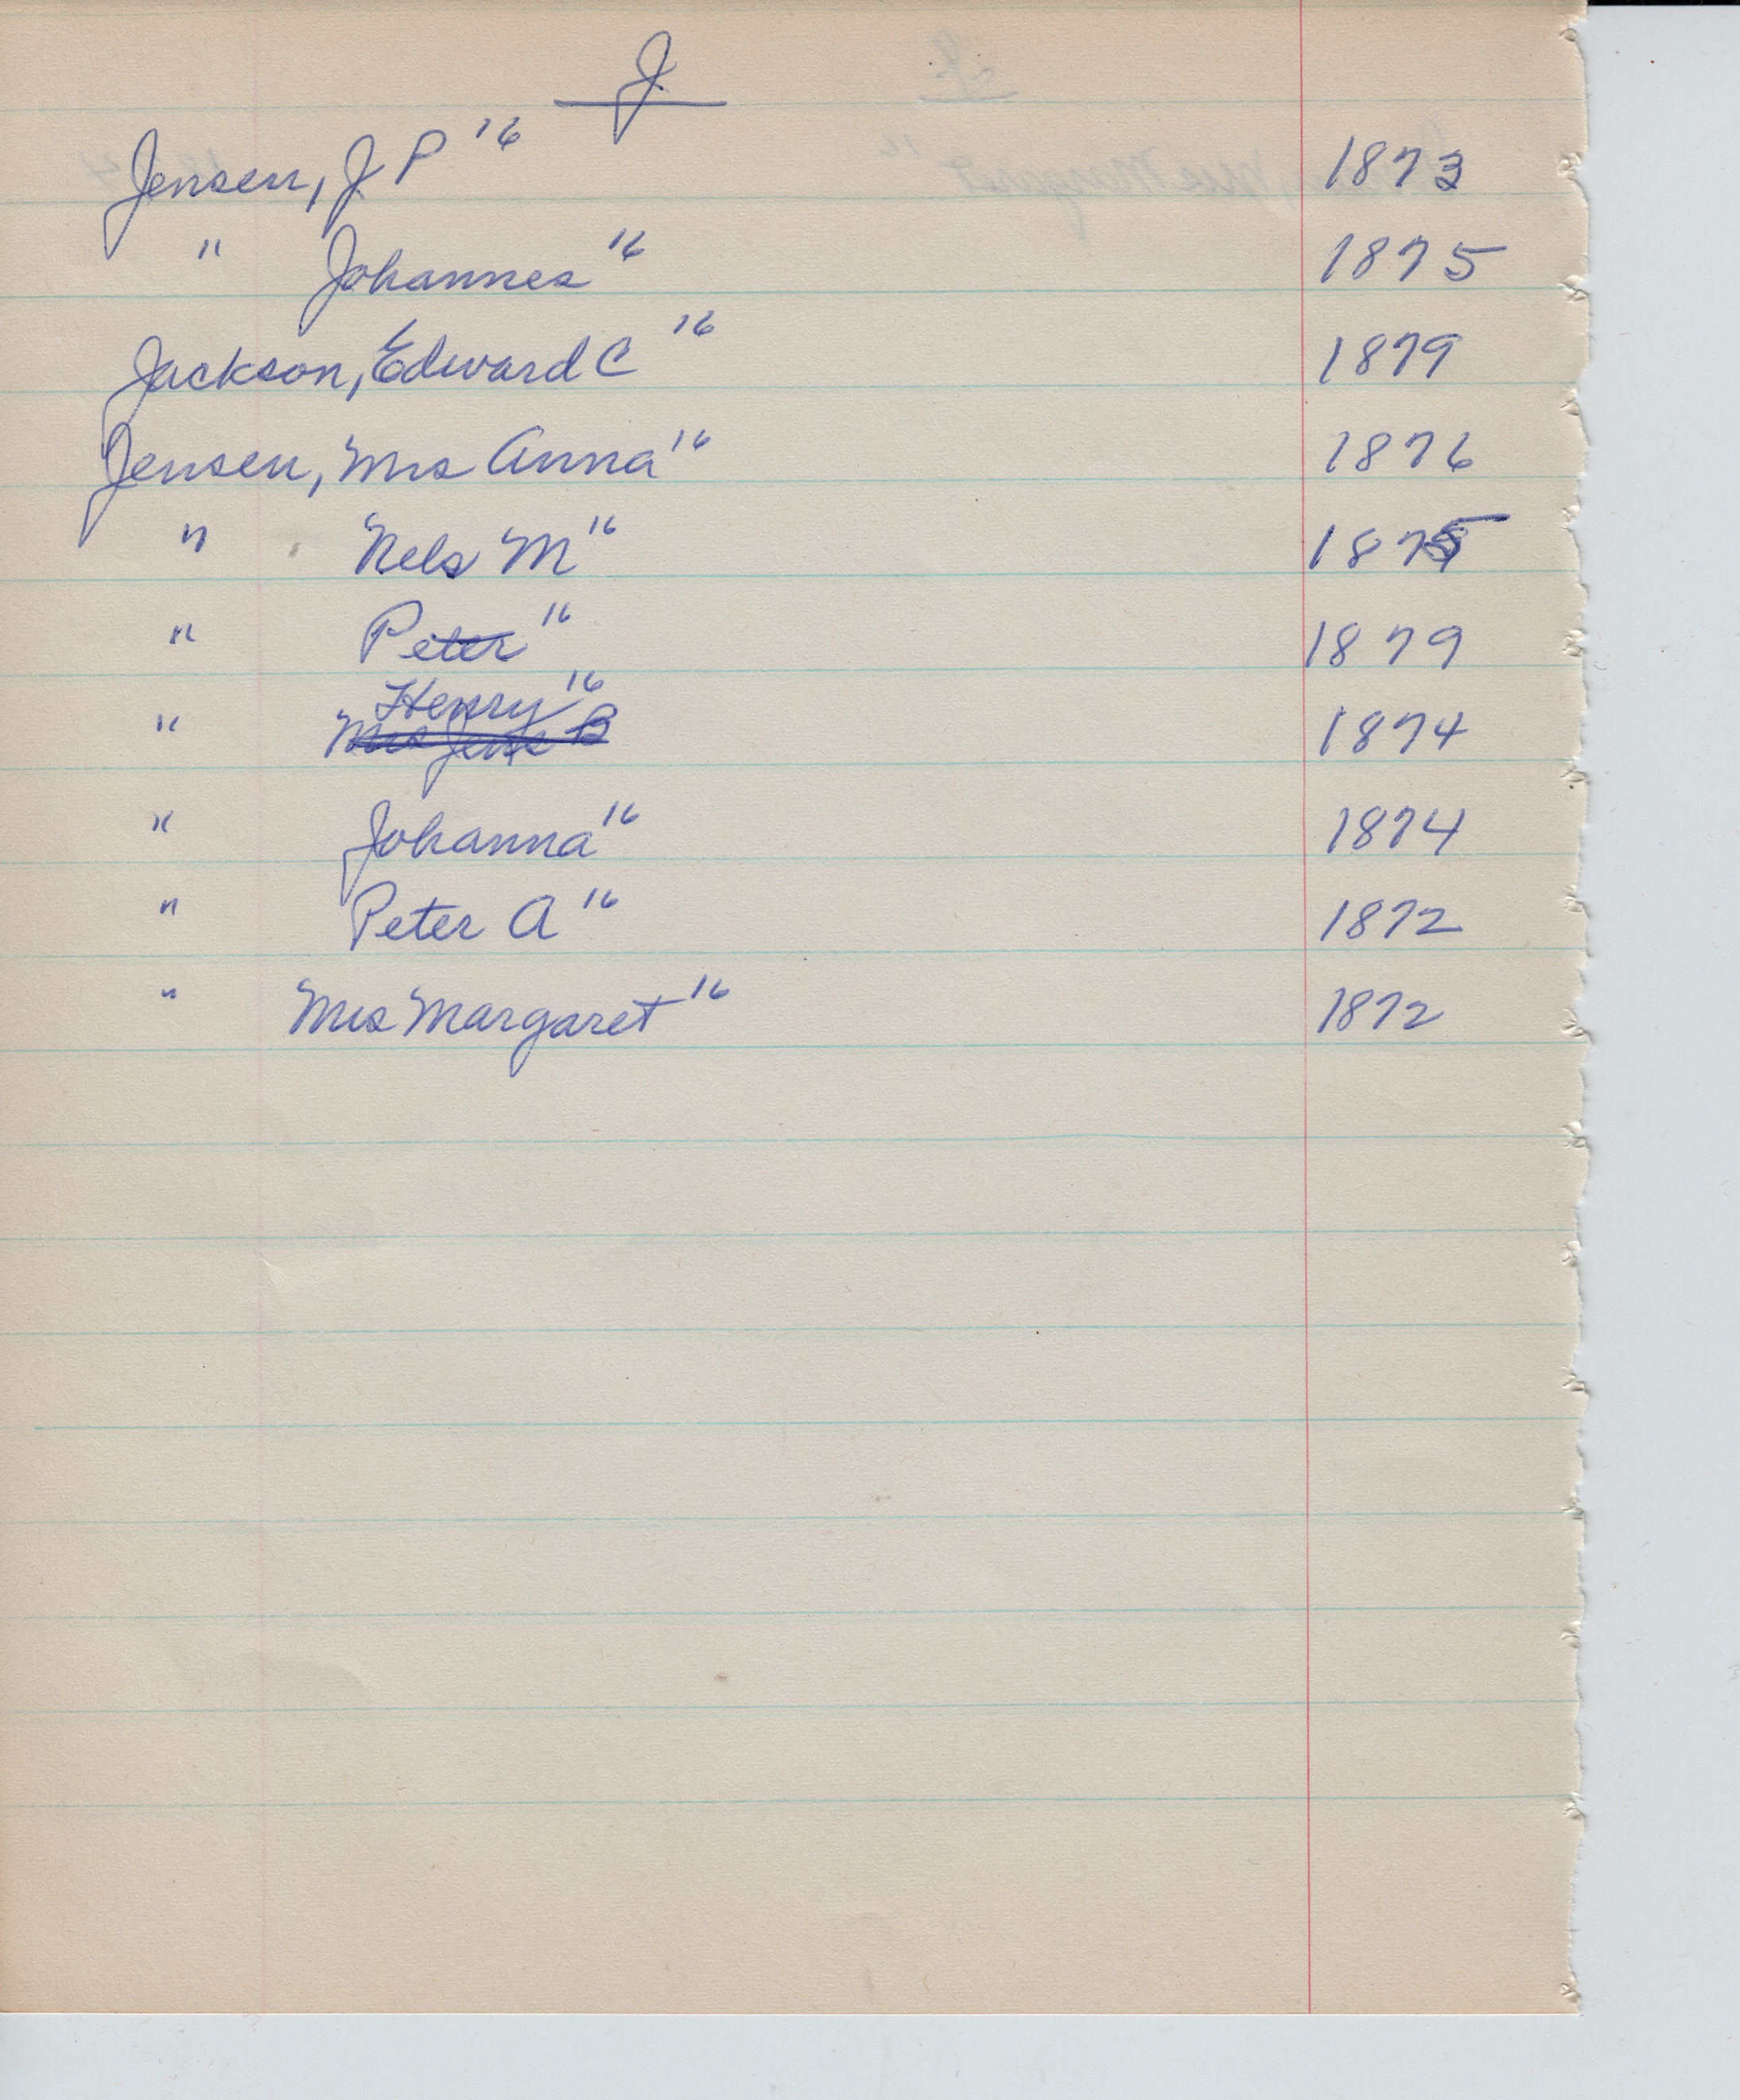 J.
Jensen, J. P "16 1873
" Johannes "16 1875
Jackson, Edward C "16 1879
Jensen, Mrs Anna "16 1876
" Nels M "16 1875
" Peter "16 1879
Henry "16
" Mrs Jens B 1874
" Johanna "16 1874
" Peter A "16 1872
" Mrs Margaret "16 1872